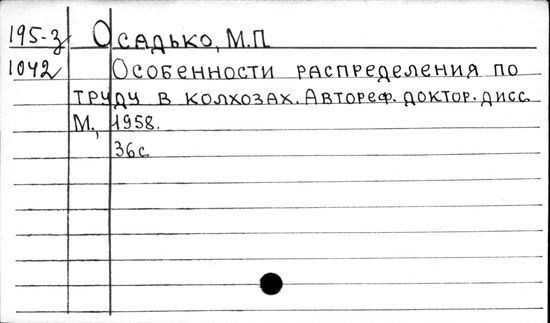 195-з Осадько, М.П.
1042 Особенности распределения по
труду в колхозах. Автореф. доктор. дисс.
М., 1958.
36с.